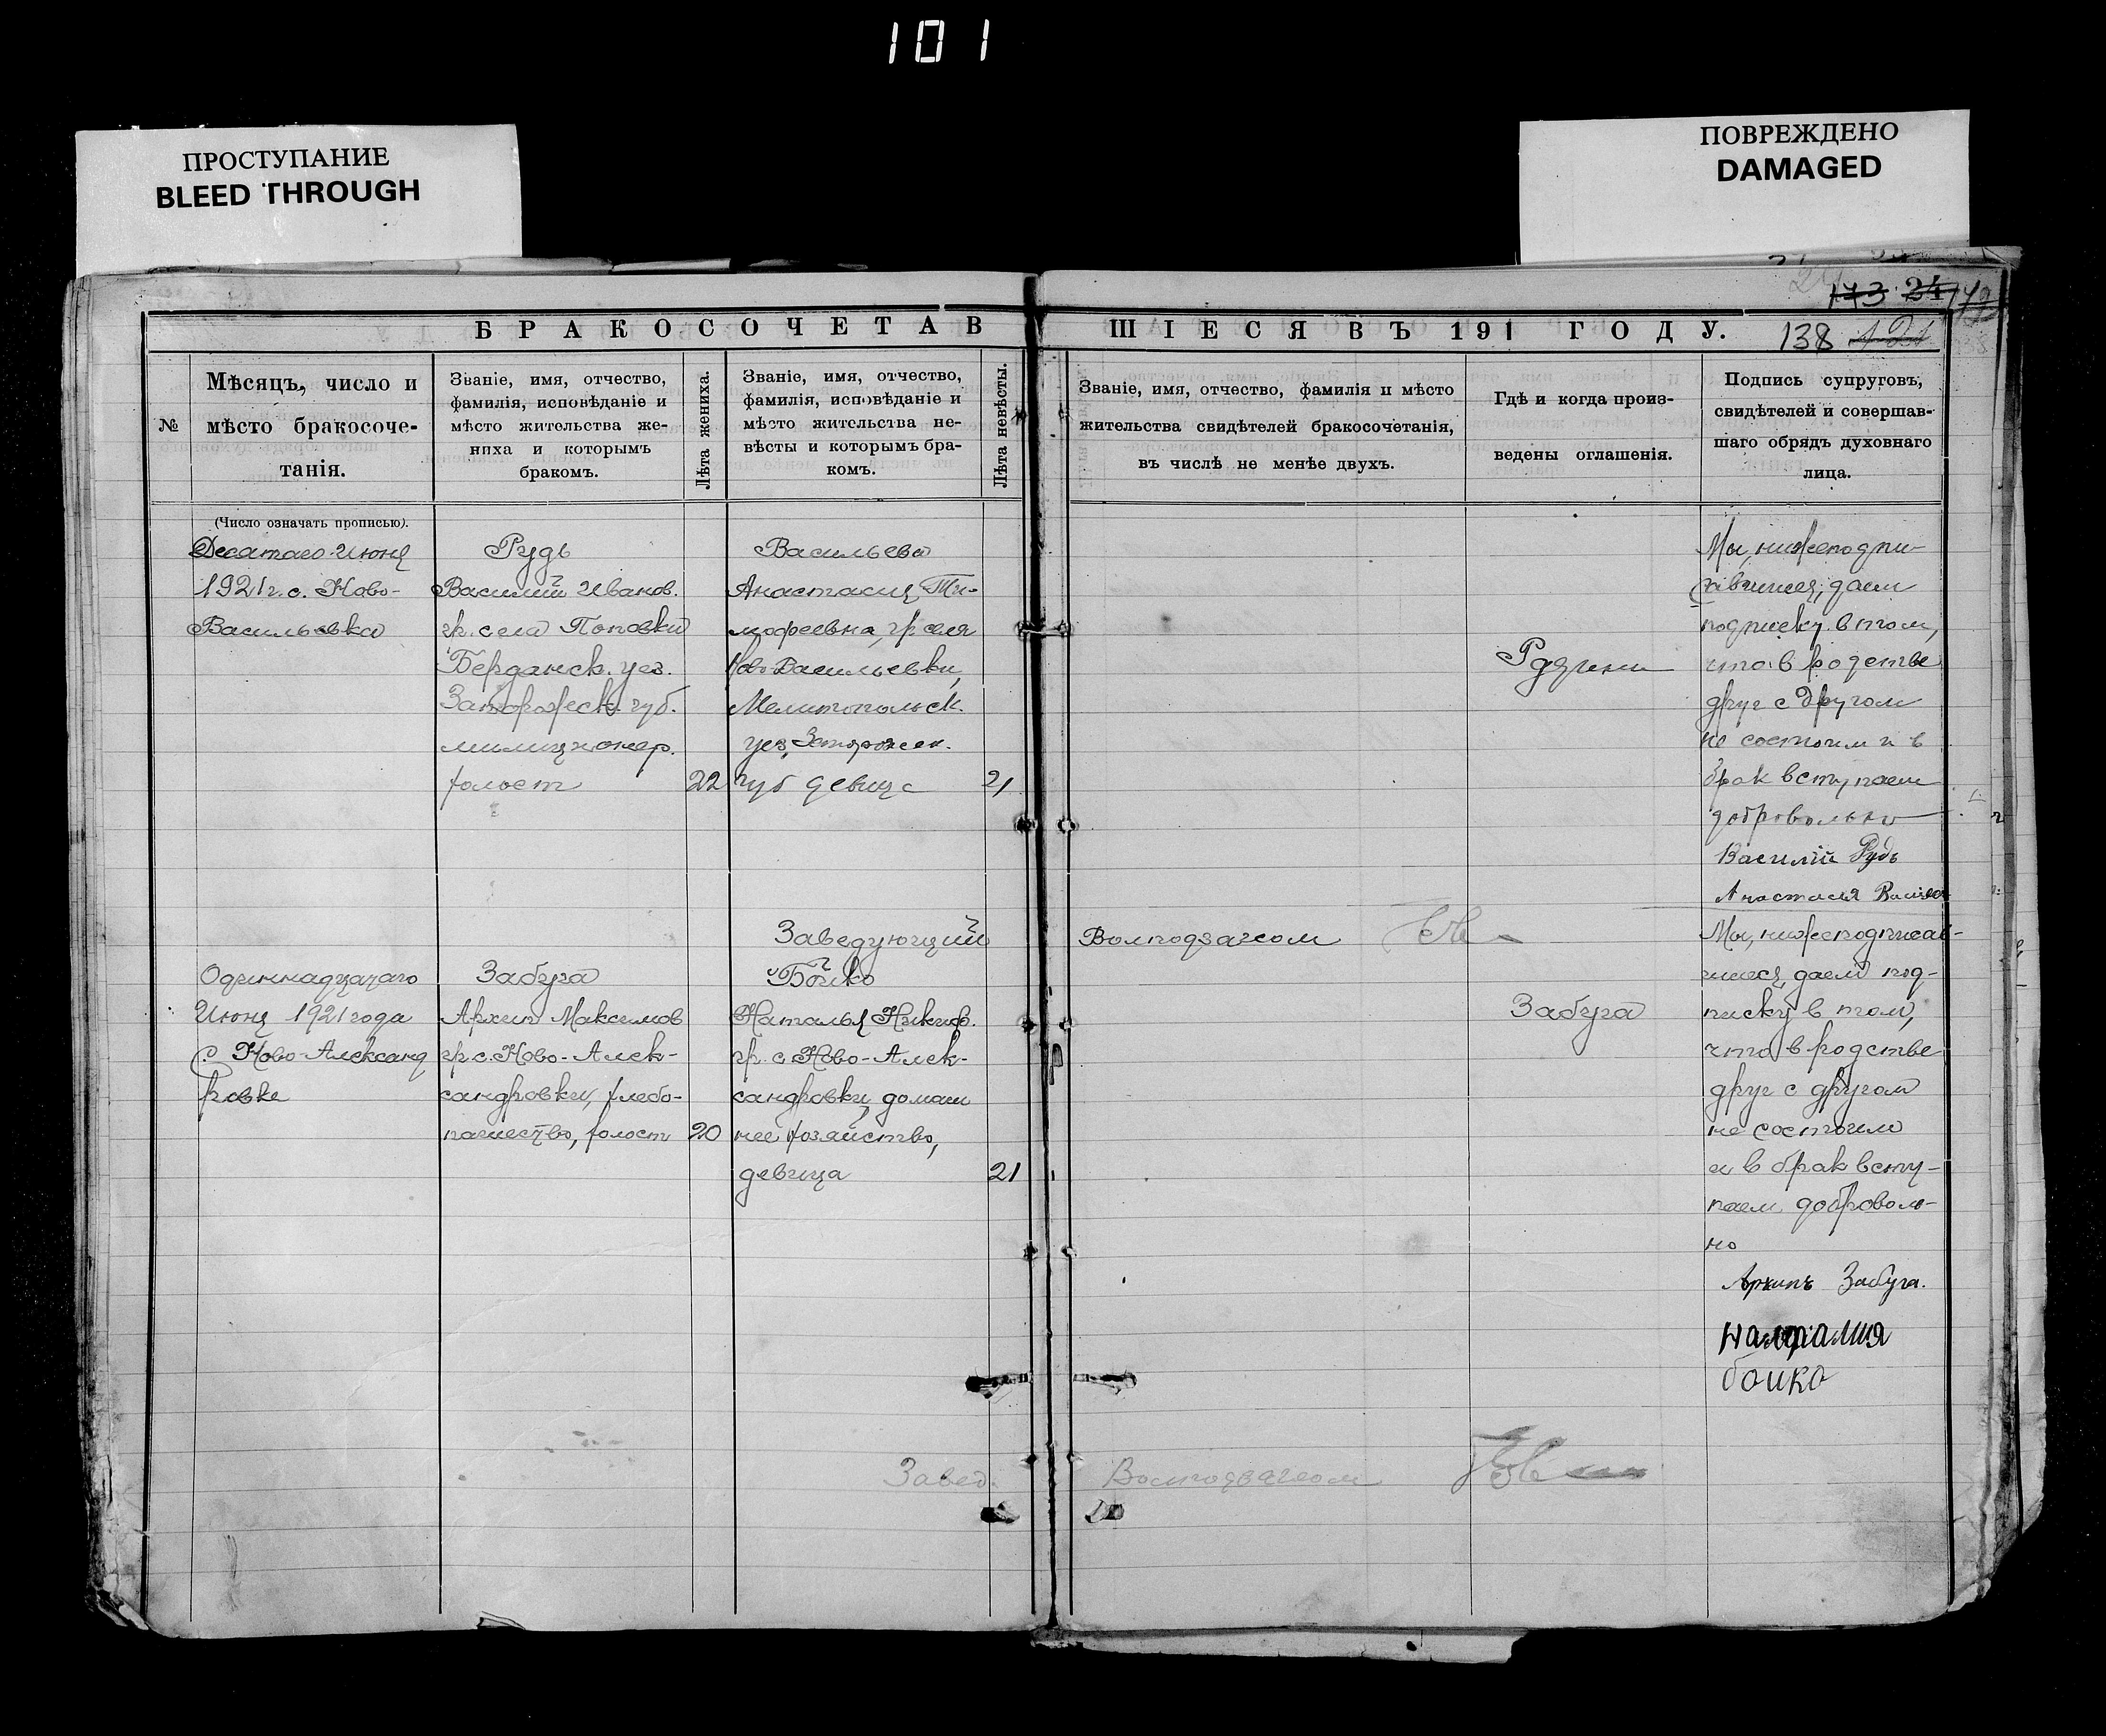 101
ПРОСТУПАНИЕ
BLEED THROUGH
ПОВРЕЖДЕНО
DAMAGED
173 24
138
БРАКОСОЧЕТАВШІЕСЯ ВЪ 191 ГОДУ.
№
Мѣсяцъ, число и
мѣсто бракосоче-
танія.
Званіе, имя, отчество,
фамилія, исповѣданіе и
мѣсто жительства же-
ниха и которымъ
бракомъ.
Лѣта жениха.
Званіе, имя, отчество,
фамилія, исповѣданіе и
мѣсто жительства не-
вѣсты и которымъ бра-
комъ.
Лѣта невѣсты.
Званіе, имя, отчество, фамилія и мѣсто
жительства свидѣтелей бракосочетанія,
въ числѣ не менѣе двухъ.
Гдѣ и когда произ-
ведены оглашенія.
Подпись супруговъ,
свидѣтелей и совершав-
шаго обрядъ духовнаго
лица.
(Число означать прописью).
Десятаго Июня
1921 г. с. Ново-
Васильевка
Рудь
Василий Иванов.
гр. села Поповки
Бердянск. уез.
Запорожск. губ.
милиционер.
холост
22
Васильева
Анастасия Ти-
мофеевна, гр. селя
Нов-Васильевки,
Мелитопольск.
уез. Запорожск.
губ девица
21
Мы, нижеподпи-
савшиеся, даем
подписку в том,
что в родстве
друг с другом
не состоим и в
брак вступаем
добровольно
Василій Рудь
Анастасія
Заведующий Волподзагсом
Одиннадцатаго
Июня 1921 года
с. Ново-Александ
ровке
Забуга
Архип Максимов
гр. с. Ново-Алек-
сандровки, хлебо-
пашество, холост
20
Бойко
Наталья Никиф.
гр. с. Ново-Алек-
сандровки, домаш
нее хозяйство,
девица
21
Забуга
Мы, нижеподписав-
шиеся, даем под-
писку в том,
что в родстве
друг с другом
не состоим
и в брак всту-
паем доброволь-
но
Архипъ Забуга.
Наталия
бойко
Завед. Волподзагсом